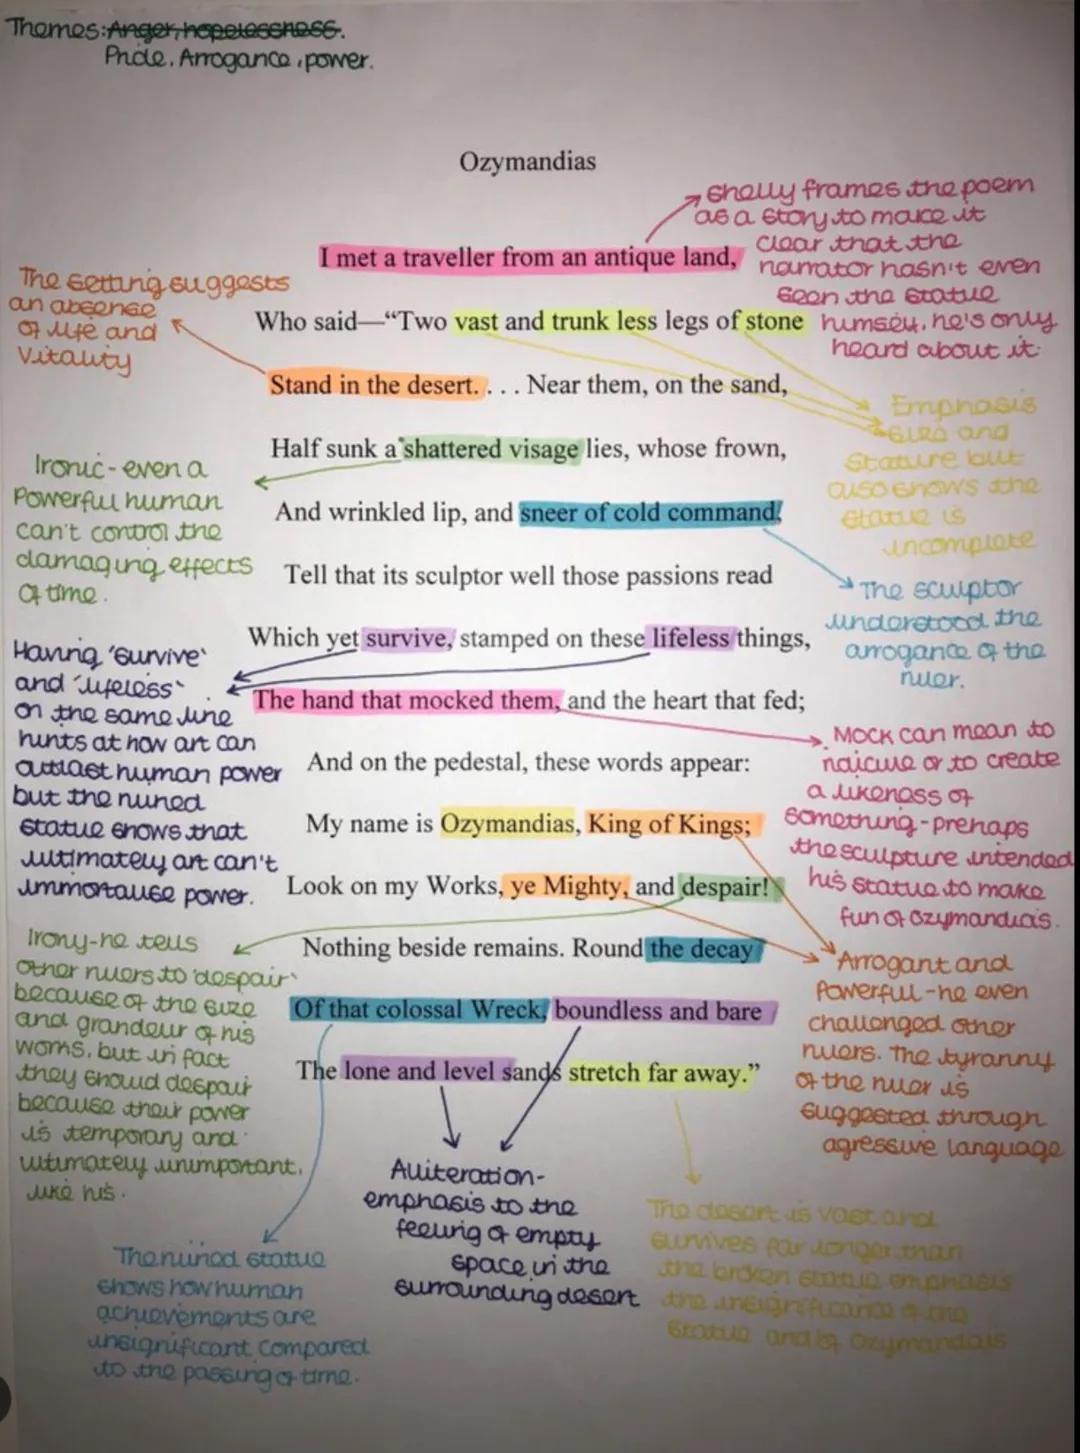 Themes: Anger, hopelessness.
Pride, Arrogance, power.
Ozymandias
I met a traveller from an antique land,
Who said—“Two vast and trunk less legs of stone
Stand in the desert. . . . Near them, on the sand,
Half sunk a shattered visage lies, whose frown,
And wrinkled lip, and sneer of cold command,
Tell that its sculptor well those passions read
Which yet survive, stamped on these lifeless things,
The hand that mocked them, and the heart that fed;
And on the pedestal, these words appear:
My name is Ozymandias, King of Kings;
Look on my Works, ye Mighty, and despair!
Nothing beside remains. Round the decay
Of that colossal Wreck, boundless and bare
The lone and level sands stretch far away.”
Shelly frames the poem
as a story to make it
clear that the
narrator hasn't even
seen the statue
himself, he's only
heard about it.
The setting suggests
an absense
of life and
Vitality
Emphasis
size and
Stature but
also shows the
statue is
incomplete
Ironic - even a
Powerful human
can't control the
damaging effects
of time.
The sculptor
understood the
arrogance of the
ruler.
Having 'survive'
and 'lifeless'
on the same line
hints at how art can
outlast human power
but the ruined
statue shows that
ultimately art can't
immortalise power.
Mock can mean to
ridicule or to create
a likeness of
something - prehaps
the sculpture intended
his statue to make
fun of Ozymandias.
Irony - he tells
other rulers to 'despair'
because of the size
and grandeur of his
works, but in fact
they should despair
because their power
is temporary and
ultimately unimportant,
like his.
Arrogant and
Powerful - he even
challenged other
rulers. The tyranny
of the ruler is
suggested through
agressive language
Alliteration -
emphasis to the
feeling of empty
space in the
surrounding desert
The ruined statue
shows how human
achievements are
insignificant compared
to the passing of time.
The desert is vast and
survives far longer than
the broken statue emphasis
the insignificance of the
Statue and of Ozymandais